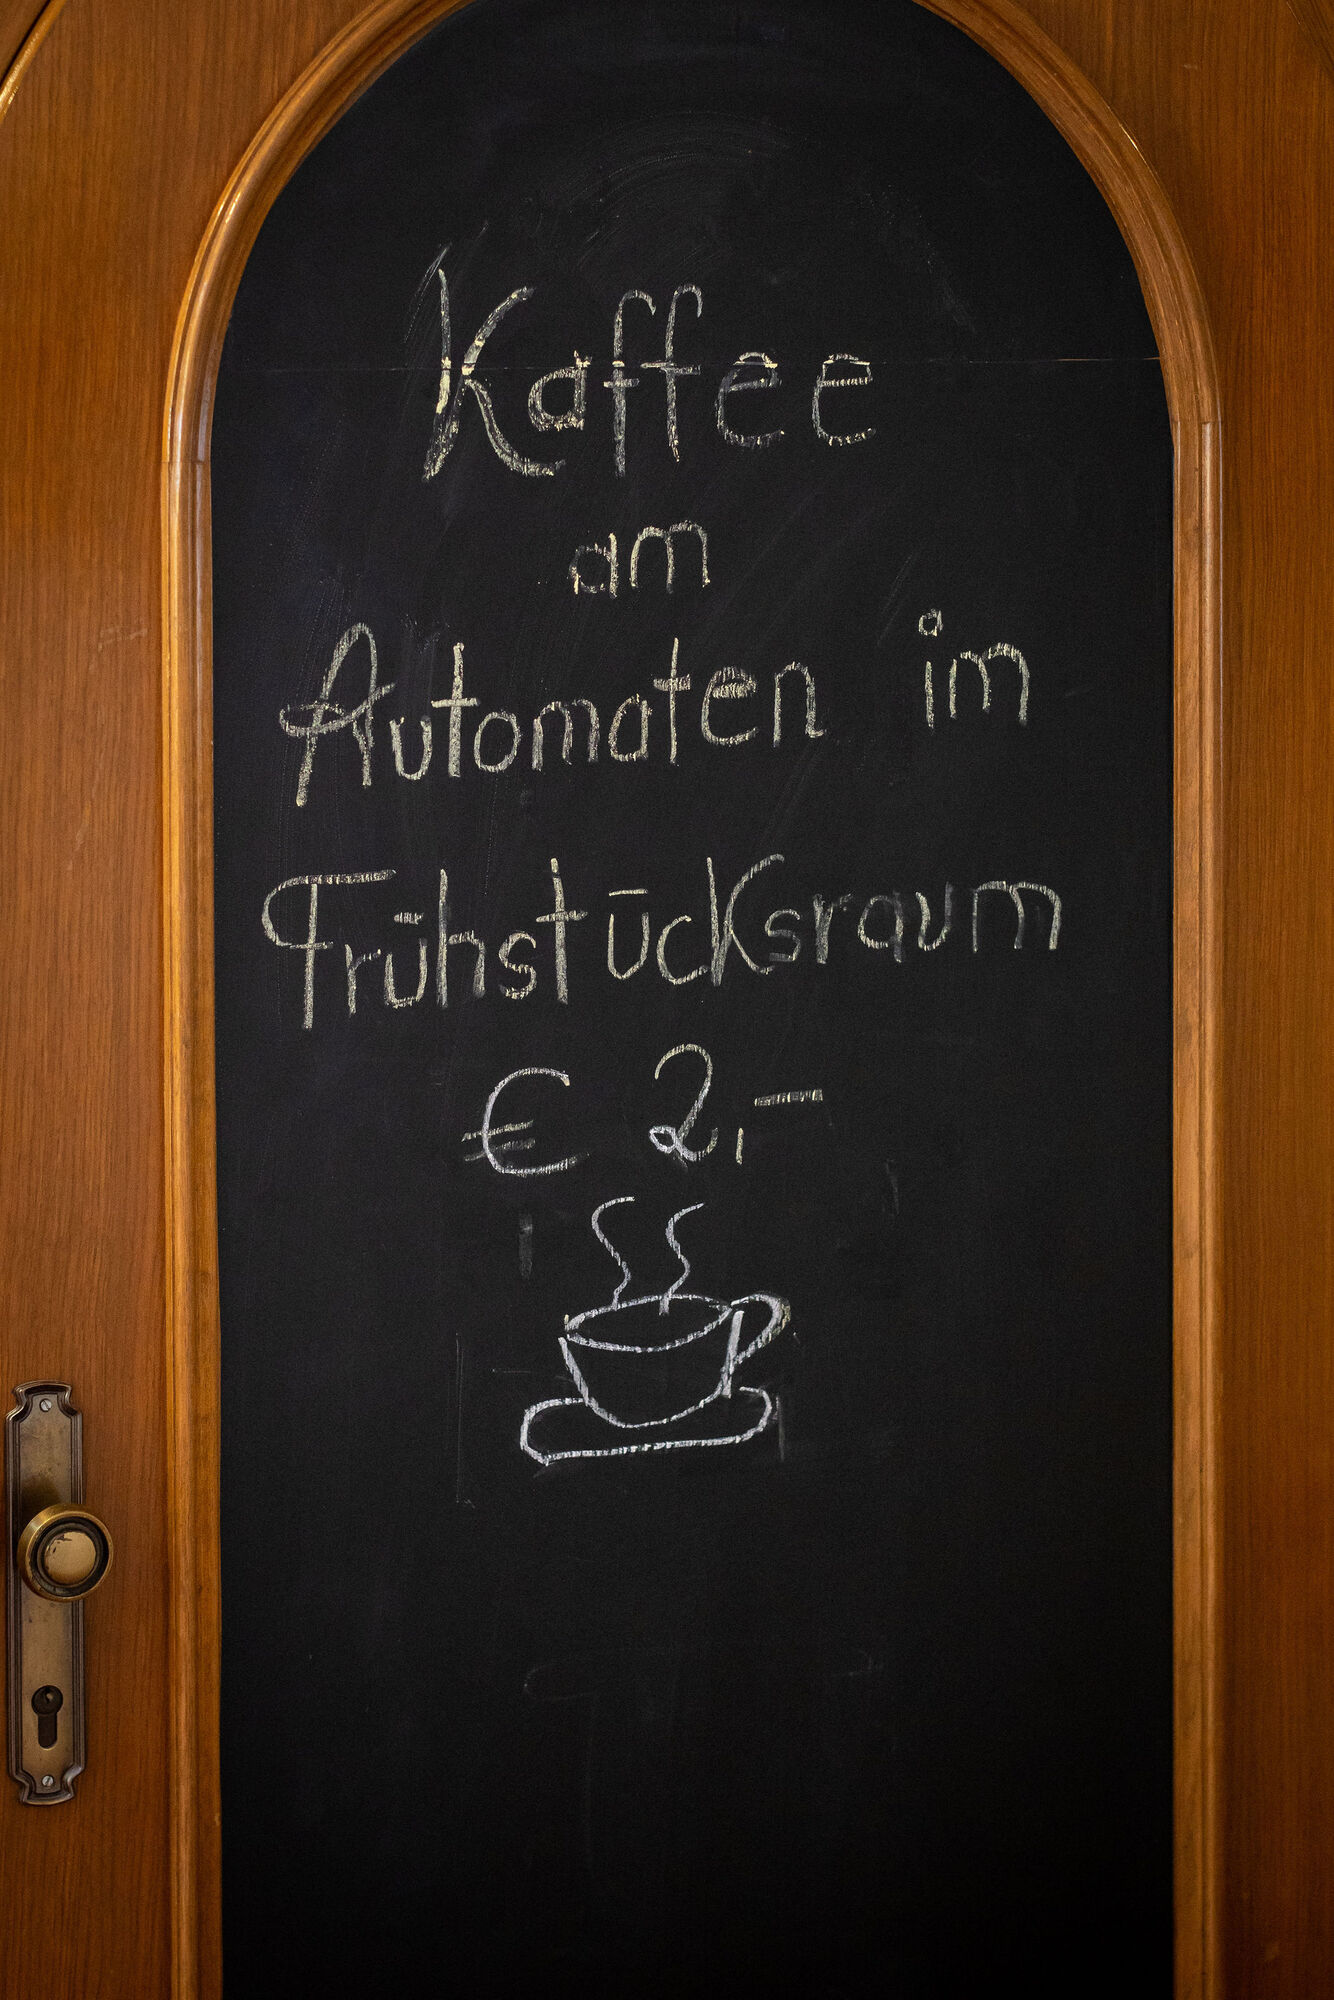 Kaffee
am
Automaten im
Frühstücksraum
€ 2,-